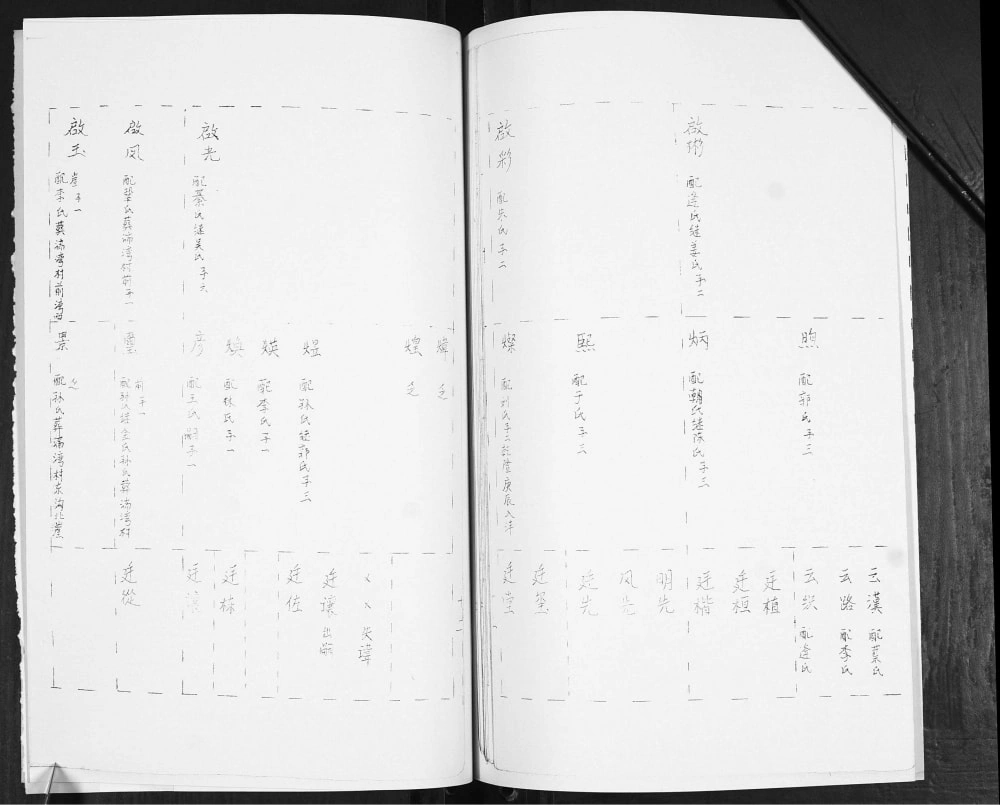 啟
配逄氏继姜氏子二
啟彩
配朱氏子二
啟光
配綦氏继吴氏子六
啟凤
氏葬湾村前子一
啟玉
配李氏葬湾村前湾西
崖子一
煦
配郭氏子三
炳
配韩氏继陈氏子三
熙
配于氏子三
燦
配刘氏子二乾隆庚辰入泮
煒
乏
煌
乏
煜
配孙氏继郭氏子三
煐
配李氏子一
焕
配林氏子一
彦
配王氏嗣子一
配孙氏继金氏孙氏葬湾村
前子一
景
配孙氏葬湾村东沟北崖
乏
云漢
配蔡氏
云路
配李氏
云
配逄氏
廷植
廷桓
廷楷
明先
凤先
廷先
廷
廷
廷讓
出嗣
廷佐
廷
廷讓
廷從